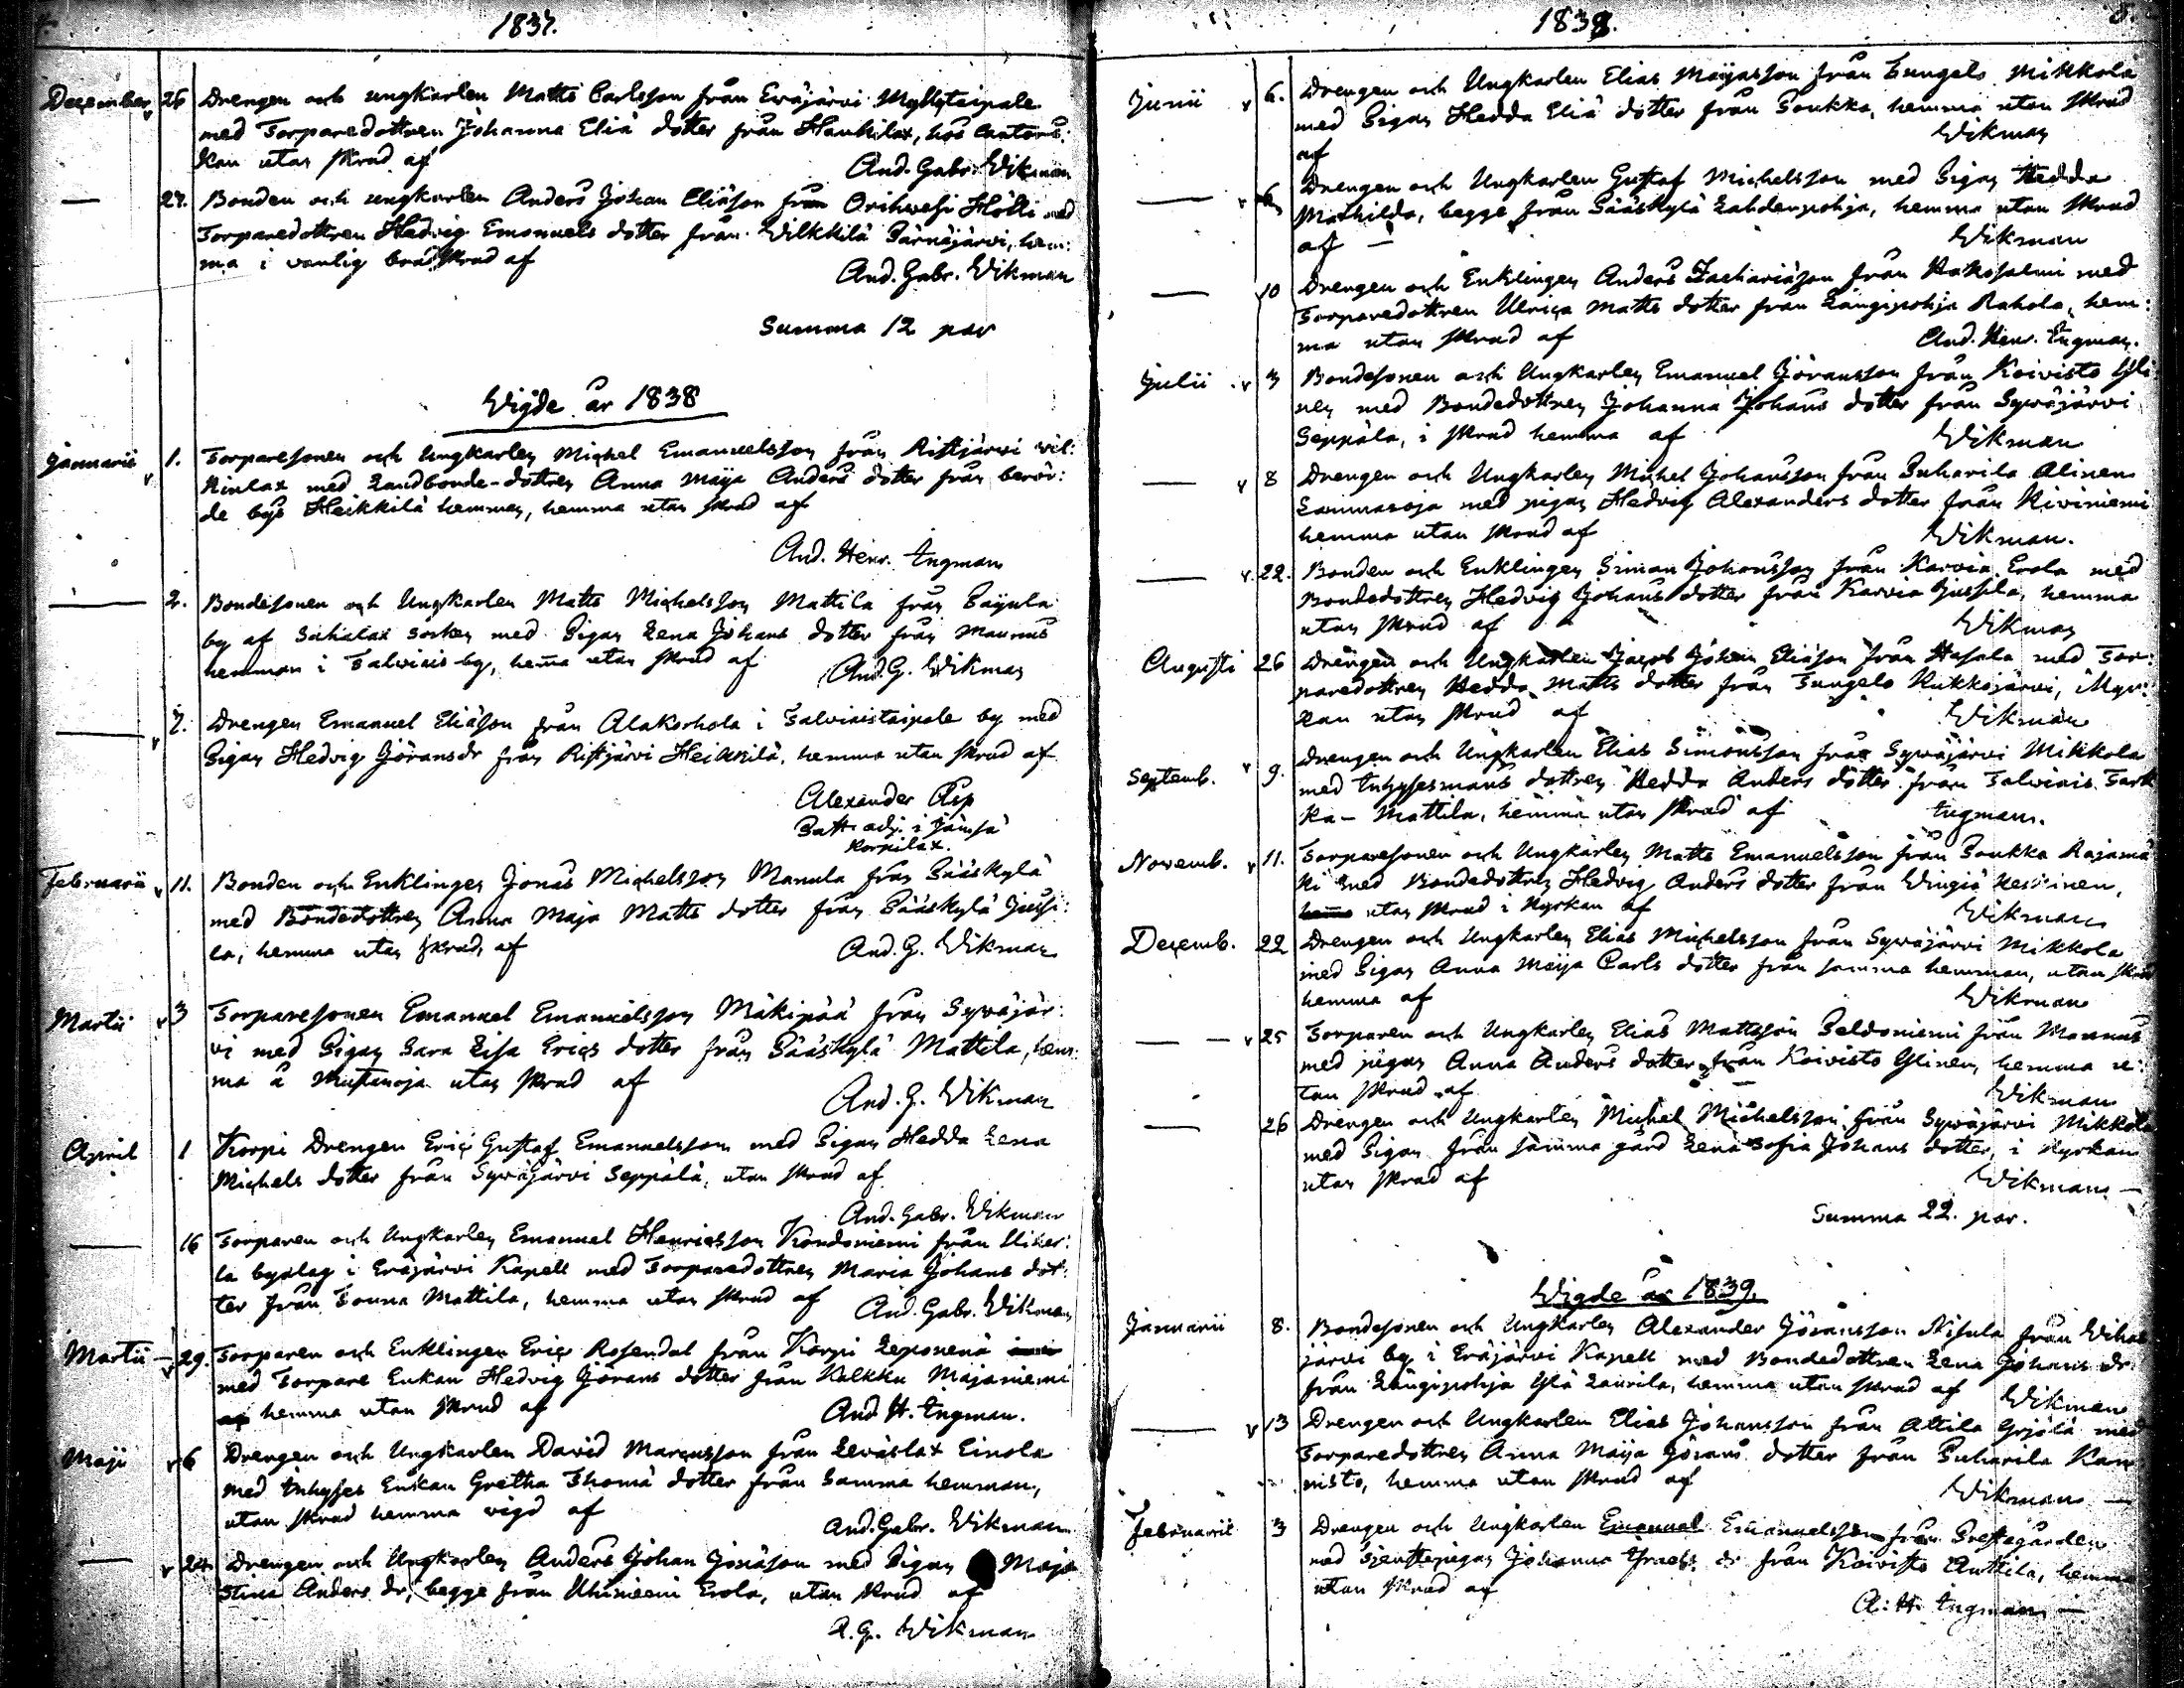 1837.
December 26 Drengen och ungkarlen Matts Carlsson från Eräjärvi Myllytaipale
med Torparedottren Johanna Eliä dotter från Haukilax, hos Cantors:
kan utan skrud af And. Gabr. Wikman
— 27. Bonden och ungkarlen Anders Johan Eliäson från Orihvesi Hölli med
Torparedottren Hedvig Emanuels dotter från Vilkkilä Särnäjärvi, hem:
ma i vanlig brudskrud af And. Gabr. Wikman
Summa 12 par
Vigde år 1838
Januarii v 1. Torparesonen och Ungkarlen Michel Emanuelsson från Ristjärvi
med Landbonde-dottren Anna Maija Anders dotter från berör:
de bys Heikkilä hemman, hemma utan skrud af
And. Henr. Ingman
— 2. Bondesonen och Ungkarlen Matts Michelsson Mattila från
by af Sahalax Socken med Pigan Lena Johans dotter från Maunus
hemman i Talviais by, hem̄a utan skrud af And. G. Wikman
— v 7. Drengen Emanuel Eliäson från Alakorhola i Talviaistaipale by med
Pigan Hedvig Göransdr från Ristjärvi Heikkilä, hemma utan skrud af
Alexander Asp
Past. adj. i Jämsä
Korpilax.
Februarii v 11. Bonden och Enklingen Jonas Michelsson Manula från Pääskylä
med Bondedottren Anna Maja Matts dotter från Pääskylä Jussi:
la, hemma utan skrud, af And. G. Wikman
Martii v 3 Torparesonen Emanuel Emanuelsson Mäkipää från Syväjär:
vi med Pigan Sara Lisa Erics dotter från Pääskylä Mattila, hem:
ma å Mustanoja utan skrud af
And. G. Wikman
April 1 Korpi Drengen Eric Gustaf Emanuelsson med Pigan Hedda Lena
Michels dotter från Syväjärvi Seppälä, utan skrud af
And. Gabr. Wikman
— 16 Torparen och Ungkarlen Emanuel Henricsson Kondoniemi från
la byalag i Eräjärvi Kapell med Torparedottren Maria Johans dot:
ter från Touna Mattila, hemma utan skrud af And. Gabr. Wikman
Martii — v 29. Torparen och Enklingen Eric Rosendal från Korpi Leponenä
med Torpare Enkan Hedvig Görans dotter från Kalkku Majaniemi
hemma utan skrud af And. H. Ingman.
Maji v 6 Drengen och Ungkarlen David Marcusson från Leväslax Einola
med Inhyses Enkan Gretha Thomä dotter från Samma hemman,
utan skrud hemma vigd af And. Gabr. Wikman
— v 24 Drengen och Ungkarlen Anders Johan Josäson med Pigan Maja
Stina Anders dr, begge från Uhiniemi Erola, utan skrud af
A. G. Wikman
1838.
Junii v 6. Drengen och Ungkarlen Elias Maijasson från Tungelo Mikkola
med Pigan Hedda Eliä dotter från Poukka, hemma utan skrud
af Wikman
— v Drengen och Ungkarlen Gustaf Michelsson med Pigan Hedda
Mathilda, begge från Pääskylä Lahdenpohja, hemma utan skrud
af — Wikman
— v 10 Drengen och Enklingen Anders Zachariäson från Haksalmi med
Torparedottren Ulrica Matts dotter från Längipohja Rahola, hem:
ma utan skrud af And. Henr. Ingman.
Julii v 3 Bondesonen och Ungkarlen Emanuel Göransson från Koivisto Yli
nen med Bondedottren Johanna Johans dotter från Syväjärvi
Seppäla, i skrud hemma af Wikman
— v 8 Drengen och Ungkarlen Michel Johansson från Puharila Alinen
Lammasoja med pigan Hedvig Alexanders dotter från Kiviniemi
hemma utan skrud af Wikman.
— v. 22. Bonden och Enklingen Simon Johansson från Karvia Erola med
Bondedottren Hedvig Johans dotter från Karvia Jussila, hemma
utan skrud af Wikman
Augusti 26 Drengen och Ungkarlen Jacob Johan Eliäson från Hasala med Tor:
paredottren Hedda Matts dotter från Tungelo Kukkojärvi, i Kyr:
kan utan skrud af Wikman
Septemb. v 9. Drengen och Ungkarlen Elias Simonsson från Syväjärvi Mikkola
med Inhysesmans dottren Hedda Anders dotter från Talviais Tark
ka- Mattila, hemma utan skrud af Ingman.
Novemb. v 11. Torparesonen och Ungkarlen Matts Emanuelsson från Poukka Rajamä
ki med Bondedottren Hedvig Anders dotter från Vingiä Heikinen,
hem̄a utan skrud i Kyrkan af Wikman
Decemb. 22 Drengen och Ungkarlen Elias Michelsson från Syväjärvi Mikkola
med Pigan Anna Maija Carls dotter från samma hemman, utan skrud
hemma af Wikman
— — v 25 Torparen och Ungkarlen Elias Mattsson Peldoniemi från Maunus
med pigan Anna Anders dotter från Koivisto Ylinen, hemma u:
tan skrud af Wikman
— 26 Drengen och Ungkarlen Michel Michelsson från Syväjärvi Mikkola
med Pigan från samma gård Lena Sofia Johans dotter, i Kyrkan
utan skrud af Wikman —
Summa 22. par.
Vigde år 1839.
Januarii 8. Bondesonen och Ungkarlen Alexander Jöransson Nisula från Vihas
järvi by i Eräjärvi Kapell med Bondedottren Lena Johans dr
från Längipohja Ylä Laurila, hemma utan skrud af Wikman
— v 13 Drengen och Ungkarlen Elias Johansson från Attila Yrjölä med
Torparedottren Anna Maija Görans dotter från Puharila Kan
nisto, hemma utan skrud af Wikman —
Februarii 3 Drengen och Ungkarlen Emanuel Emanuelsson från Prestegården
med Tjenstepigan Johanna Israels dr från Koivisto Anttila, hemma
utan skrud af
A: H. Ingman —